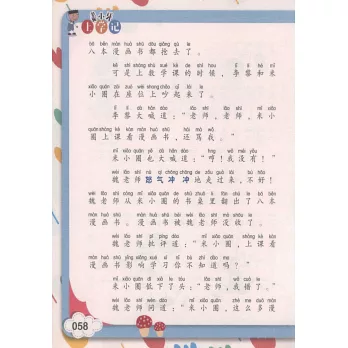 米小圈
上学记
bā běn màn huà shū dōu qiǎng qù le
八本漫画书都抢去了。
kě shì shàng shù xué kè de shí hou lǐ lí hé mǐ
可是上数学课的时候，李黎和米
xiǎo quān zài zuò wèi shang chǎo qǐ lái le
小圈在座位上吵起来了。
lǐ lí dà hǎn dào lǎo shī lǎo shī mǐ xiǎo
李黎大喊道：“老师，老师，米小
quān shàng kè kàn màn huà shū hái mà wǒ
圈上课看漫画书，还骂我。”
mǐ xiǎo quān yě dà hǎn dào hng wǒ méi yǒu
米小圈也大喊道：“哼！我没有！”
wèi lǎo shī nù qì chōng chōng de zǒu guò lái bù hǎo
魏老师怒气冲冲地走过来，不好！
wèi lǎo shī cóng mǐ xiǎo quān de shū zhuō lǐ fān chū le bā běn
魏老师从米小圈的书桌里翻出了八本
màn huà shū màn huà shū bèi wèi lǎo shī mò shōu le
漫画书。漫画书被魏老师没收了。
wèi lǎo shī pī píng dào mǐ xiǎo quān shàng kè kàn
魏老师批评道：“米小圈，上课看
màn huà shū yǐng xiǎng xué xí nǐ bù zhī dào ma
漫画书影响学习你不知道吗？”
mǐ xiǎo quān dī xià le tóu lǎo shī wǒ cuò le
米小圈低下了头：“老师，我错了。”
wèi lǎo shī wèn dào mǐ xiǎo quān zhè me duō màn
魏老师问道：“米小圈，这么多漫
058